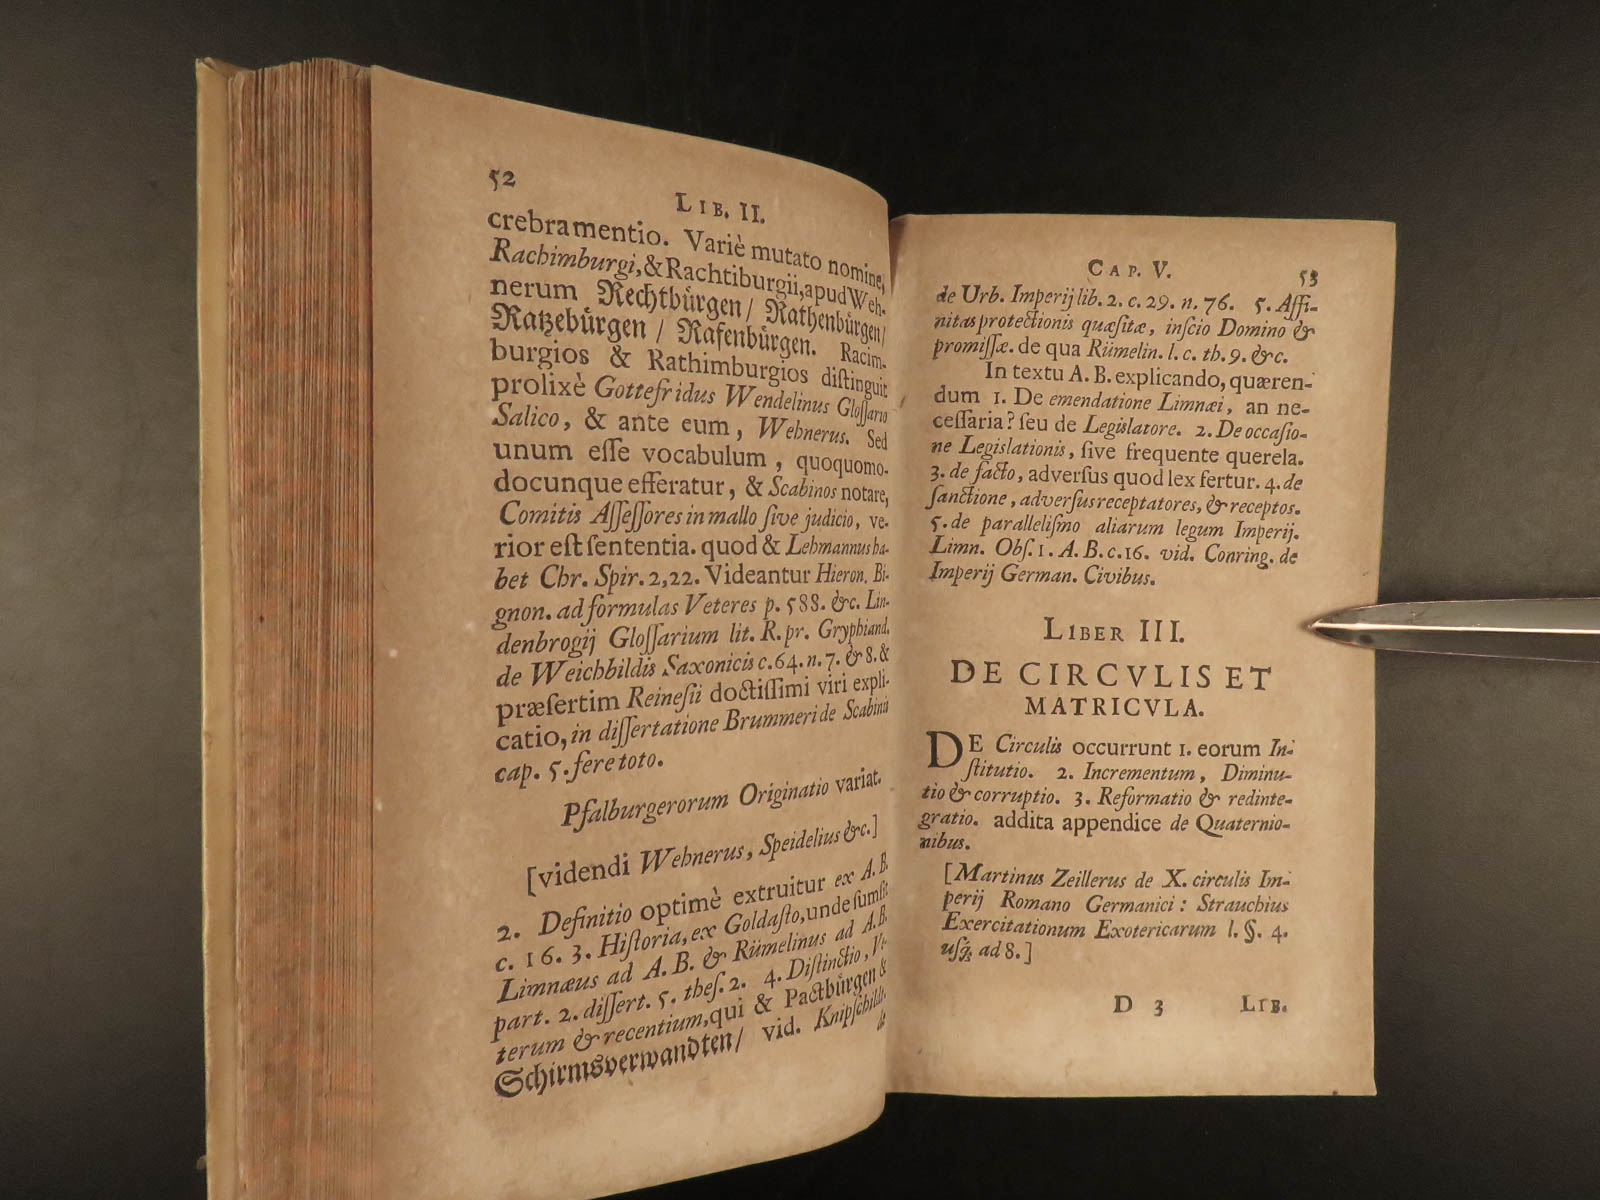 52
LIB. II.
crebramentio. Variè mutato nomine,
Rachimburgi, & Rachtiburgii, apud Weh-
nerum Rechtbürgen/ Rathenbürgen/
Ratzebürgen / Rafenbürgen. Racim-
burgios & Rathimburgios diſtinguit
prolixè Gottefridus Wendelinus Gloſſario
Salico, & ante eum, Wehnerus. Sed
unum eſſe vocabulum, quoquomo-
docunque efferatur, & Scabinos notare,
Comitis Aſſeſſores in mallo ſive judicio, ve-
rior eſt ſententia. quod & Lehmannus ha-
bet Chr. Spir. 2,22. Videantur Hieron. Bi-
gnon. ad formulas Veteres p. 588. &c. Lin-
denbrogij Gloſſarium lit. R. pr. Gryphiand.
de Weichbildis Saxonicis c. 64. n. 7. & 8. &
præſertim Reineſii doctiſſimi viri expli-
catio, in diſſertatione Brummeri de Scabinis
cap. 5. fere toto.
Pfalburgerorum Originatio variat.
[videndi Wehnerus, Speidelius &c.]
2. Definitio optimè extruitur ex A. B.
c. 16. 3. Hiſtoria, ex Goldaſto, unde ſumſit
Limnæus ad A. B. & Rümelinus ad A. B.
part. 2. diſſert. 5. theſ. 2. 4. Diſtinctio, Ve-
terum & recentium, qui & Pactbürgen &
Schirmsverwandten/ vid. Knipſchildt.
de
CAP. V.
53
de Urb. Imperij lib. 2. c. 29. n. 76. 5. Affi-
nitas protectionis quæſitæ, inſcio Domino &
promiſſæ. de qua Rümelin. l. c. th. 9. &c.
In textu A. B. explicando, quæren-
dum 1. De emendatione Limnæi, an ne-
ceſſaria? ſeu de Legislatore. 2. De occaſio-
ne Legislationis, ſive frequente querela.
3. de facto, adverſus quod lex fertur. 4. de
ſanctione, adverſus receptatores, & receptos.
5. de paralleliſmo aliarum legum Imperij.
Limn. Obſ. 1. A. B. c. 16. vid. Conring. de
Imperij German. Civibus.
LIBER III.
DE CIRCVLIS ET
MATRICVLA.
DE Circulis occurrunt 1. eorum In-
ſtitutio. 2. Incrementum, Diminu-
tio & corruptio. 3. Reformatio & redinte-
gratio. addita appendice de Quaternio-
nibus.
[Martinus Zeillerus de X. circulis Im-
perij Romano Germanici: Strauchius
Exercitationum Exotericarum l. §. 4.
uſq́. ad 8.]
D 3
LIB.